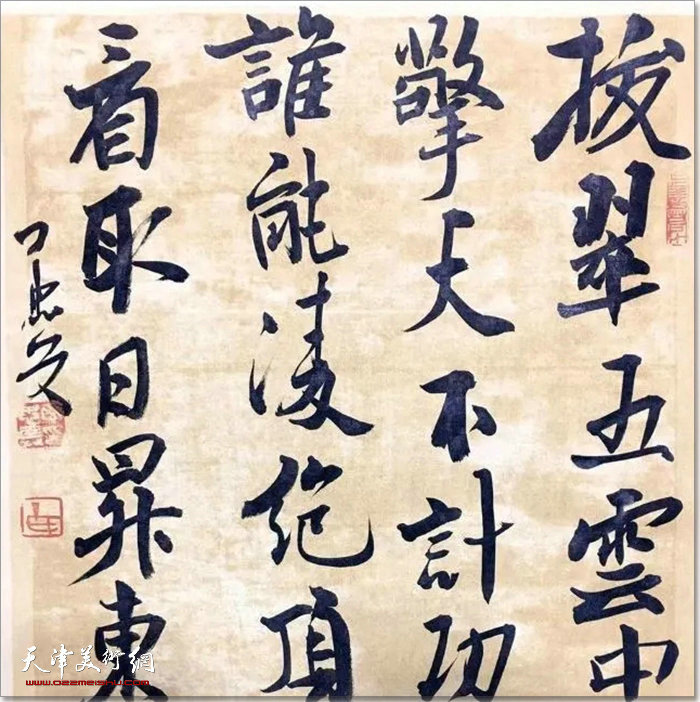 拔翠五雲中
擎天不計功
誰能凌絶頂
看取日昇東
天津美術網
www.022meishu.com